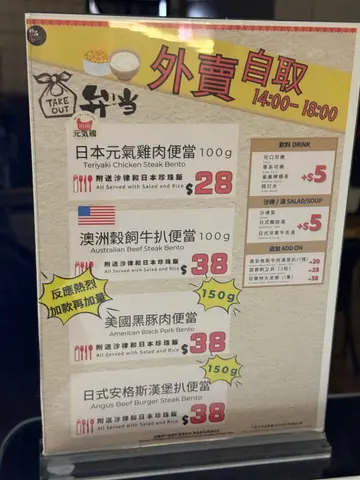 外賣自取
14:00-18:00
TAKE OUT
弁当
元気鶏
日本元氣雞肉便當 100g
Teriyaki Chicken Steak Bento
附送沙律和日本珍珠飯
All Served with Salad and Rice
$28
澳洲穀飼牛扒便當 100g
Australian Beef Steak Bento
附送沙律和日本珍珠飯
All Served with Salad and Rice
$38
反應熱烈
加款再加量
150g
美國黑豚肉便當
American Black Pork Bento
附送沙律和日本珍珠飯
All Served with Salad and Rice
$38
150g
日式安格斯漢堡扒便當
Angus Beef Burger Steak Bento
附送沙律和日本珍珠飯
All Served with Salad and Rice
$38
飲料 DRINK
可口可樂
+$5
沙律/湯 SALAD/SOUP
+$5
追加 ADD ON
+20
+38
+38